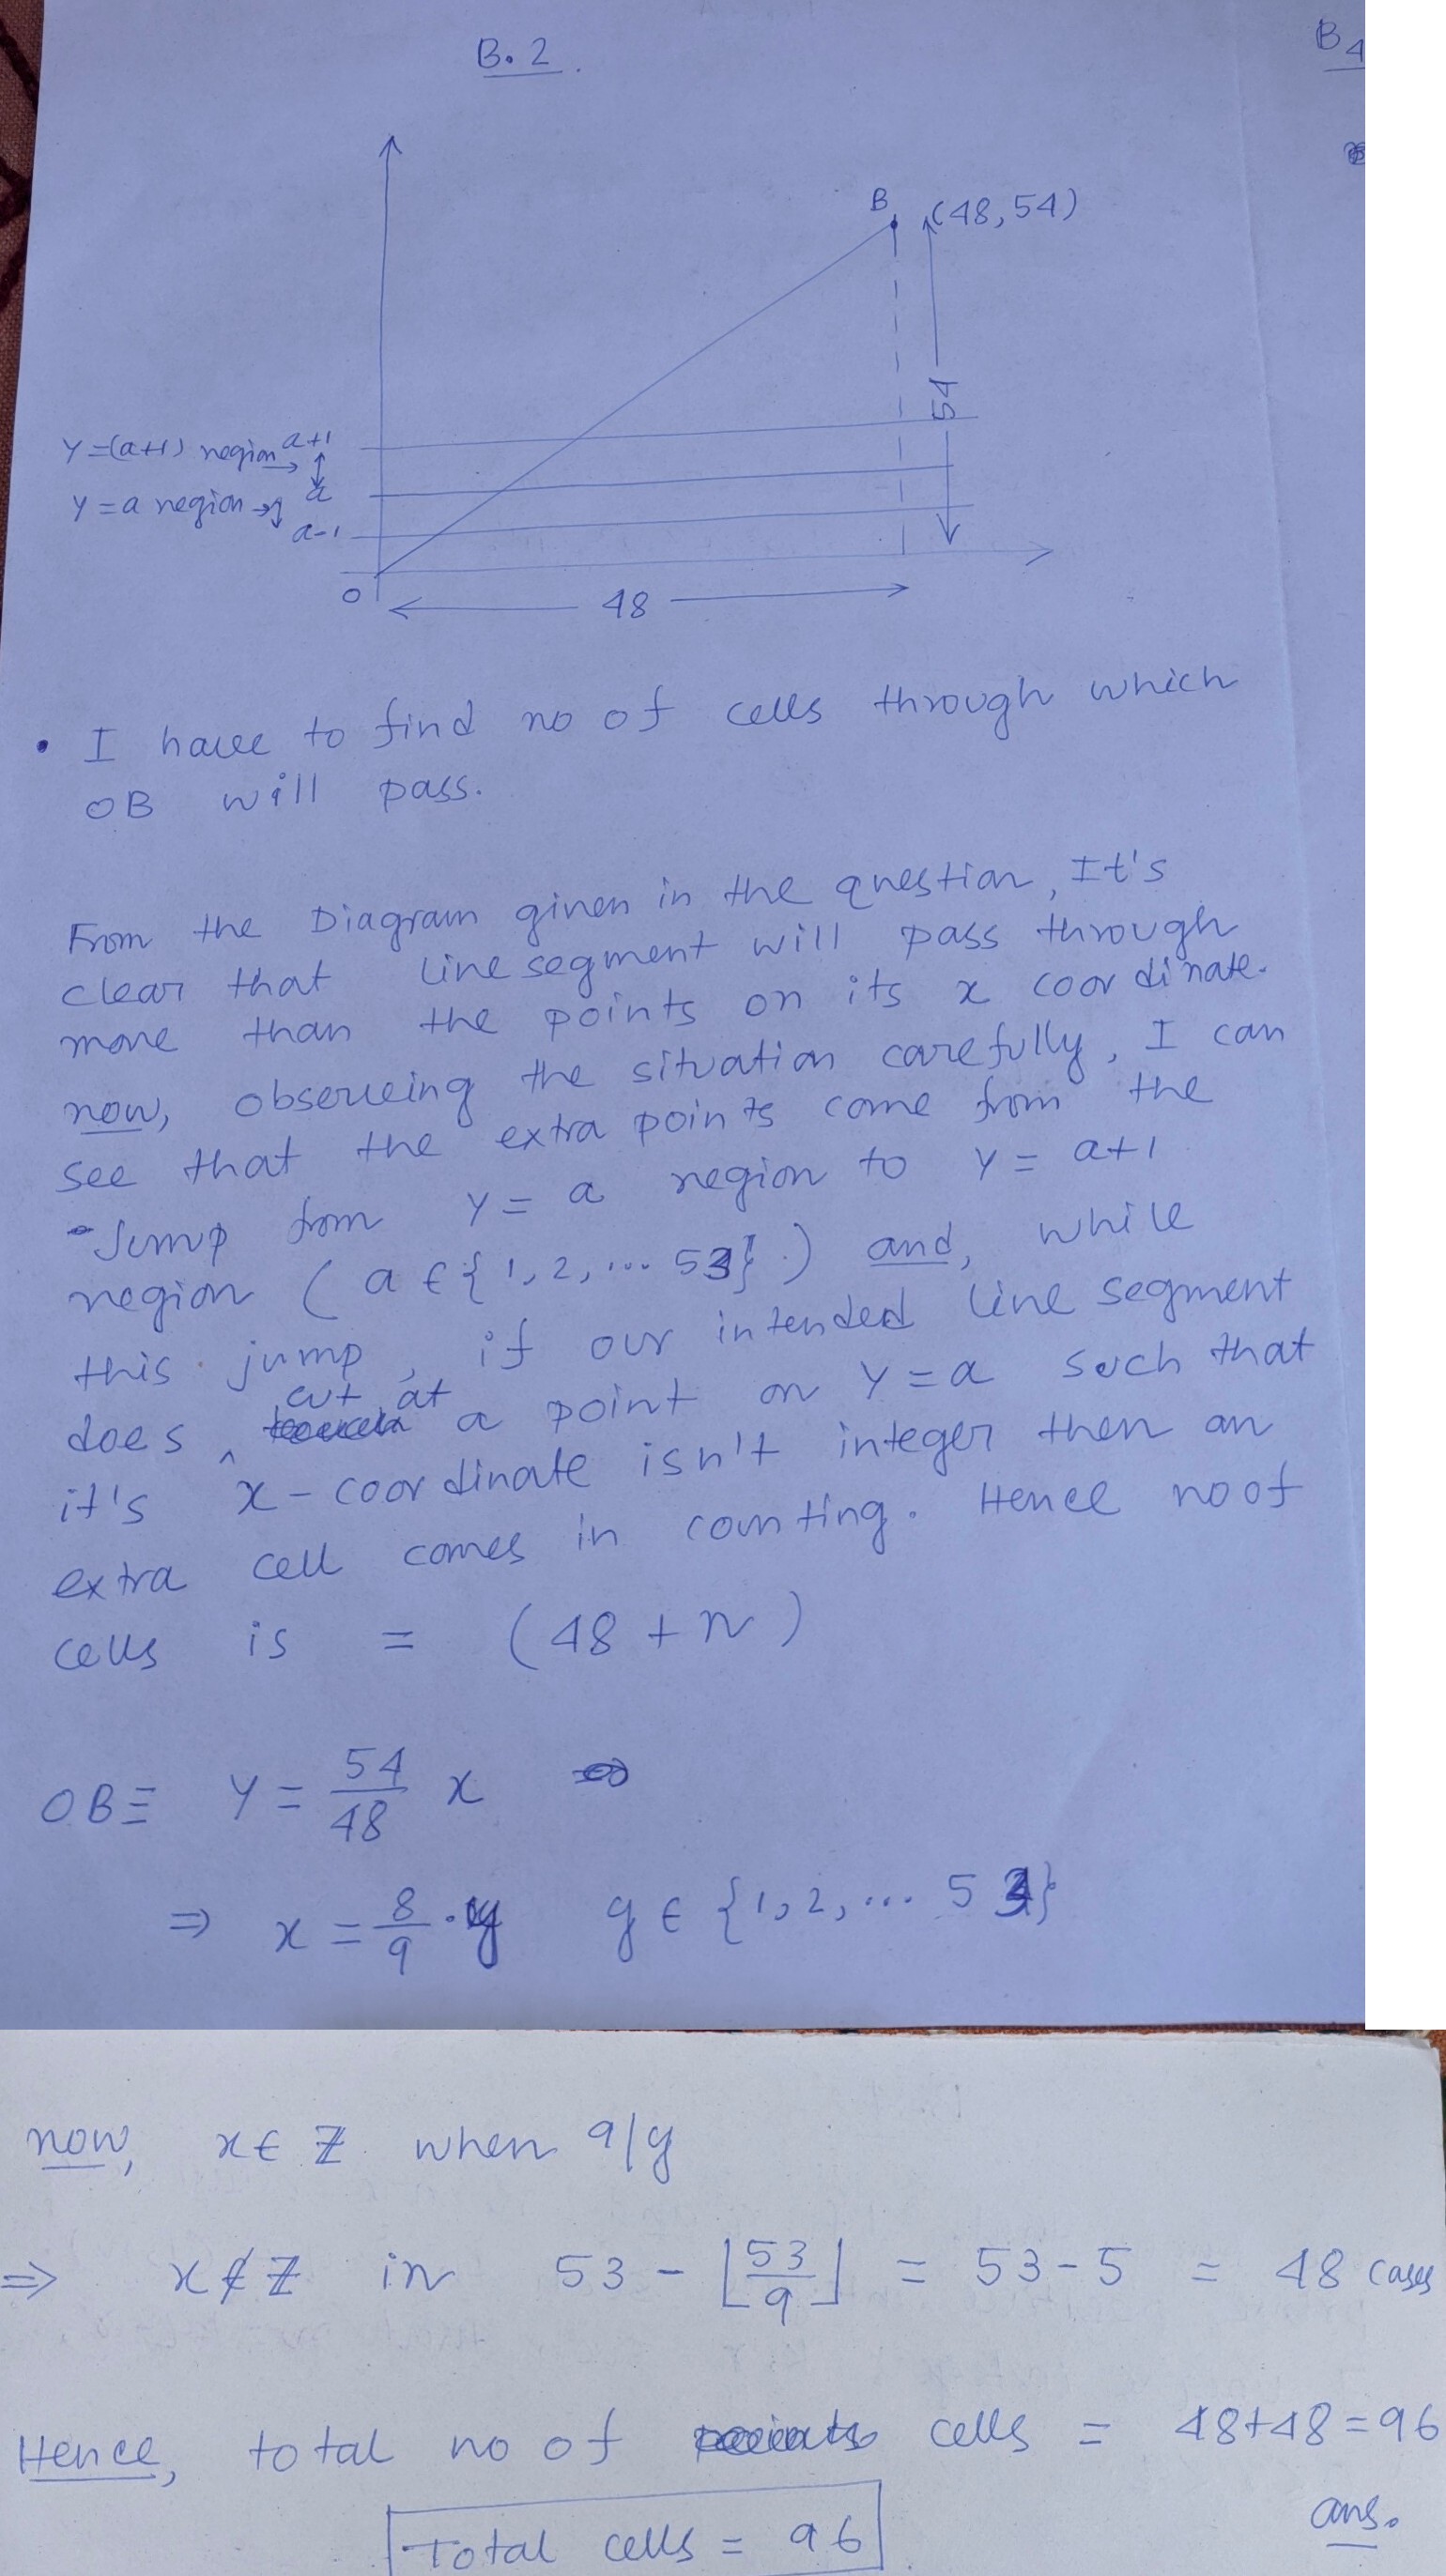 B.2.
B4
B (48,54)
54
Y=(a+1) region a+1
Y=a region a
a-1
O
48
• I have to find no of cells through which
OB will pass.
From the Diagram given in the question, It's
clear that line segment will pass through
more than the points on its x coordinate.
now, observeing the situation carefully, I can
see that the extra points come from the
Jump from Y= a region to Y= a+1
region (a ∈ {1,2,... 53}) and, while
this jump, if our intended line segment
does cut at a point on Y=a such that
it's x-coordinate isn't integer then an
extra cell comes in counting. Hence no of
cells is = (48+n)
OB≡ Y = 54/48 x
⇒ x = 8/9 · y y ∈ {1,2,... 53}
now, x ∈ Z when 9/y
⇒ x ∉ Z in 53 - ⌊53/9⌋ = 53-5 = 48 cases
Hence, total no of cells = 48+48=96
ans.
Total cells = 96